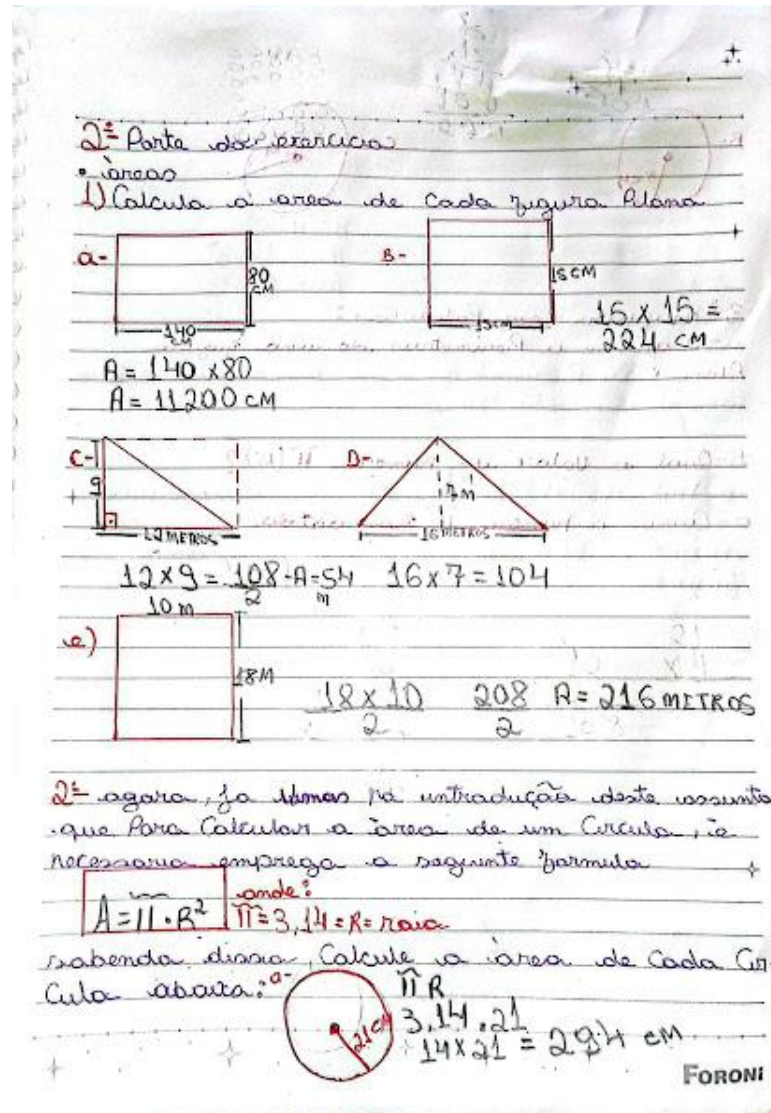 2ª Parte do exercicio
• áreas
1) Calcula a area de cada figura Plana
a-
80
CM
140
CM
B-
15 CM
15cm
15 x 15 =
224 CM
A = 140 x 80
A = 11200 CM
C-
9
12 METROS
D-
7m
16 METROS
12 x 9 = 108 - A = 54
2 m
16 x 7 = 104
10 m
e)
18M
18 x 10
2
208
2
A = 216 METROS
2ª agora, ja vimos na introdução deste assunto
que Para Calcular a área de um Circulo, é
necessario emprega a seguinte formula
A = π • R²
onde:
π = 3,14 = R = raio
sabendo disso, Calcule a área de Cada Cir
culo abaixo: a-
21 CM
π R
3,14 . 21
14 x 21 = 294 CM
FORONI